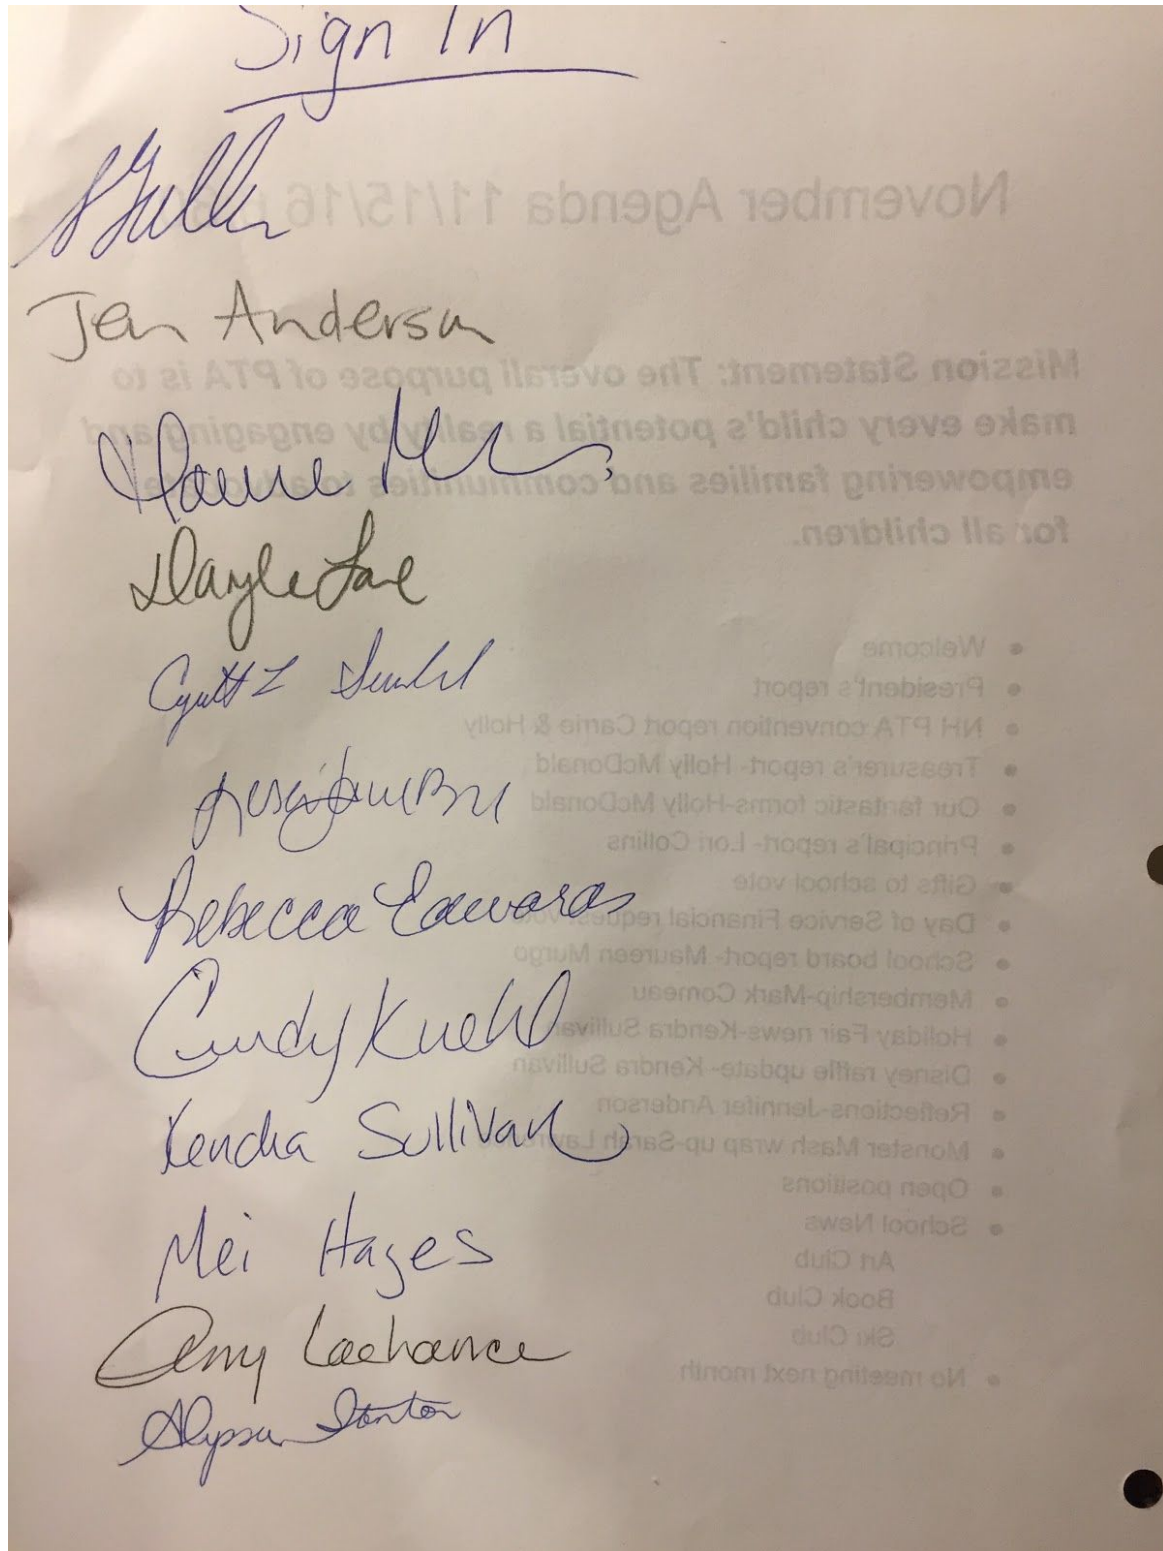 Sign In
Jen Anderson
Rebecca Edwards
Cindy Kuehl
Kendra Sullivan
Mei Hayes
Amy Lachance
Alyssa Stanton
November Agenda 11/15/16
Mission Statement: The overall purpose of PTA is to
make every child's potential a reality by engaging and
empowering families and communities to advocate
for all children.
Welcome
President's report
NH PTA convention report Carrie & Holly
Treasurer's report- Holly McDonald
Our fantastic forms-Holly McDonald
Principal's report- Lori Collins
Gifts to school vote
Day of Service Financial request vote
School board report- Maureen Murgo
Membership-Mark Comeau
Holiday Fair news-Kendra Sullivan
Disney raffle update- Kendra Sullivan
Reflections-Jennifer Anderson
Monster Mash wrap up-Sarah
Open positions
School News
Art Club
Book Club
Ski Club
No meeting next month